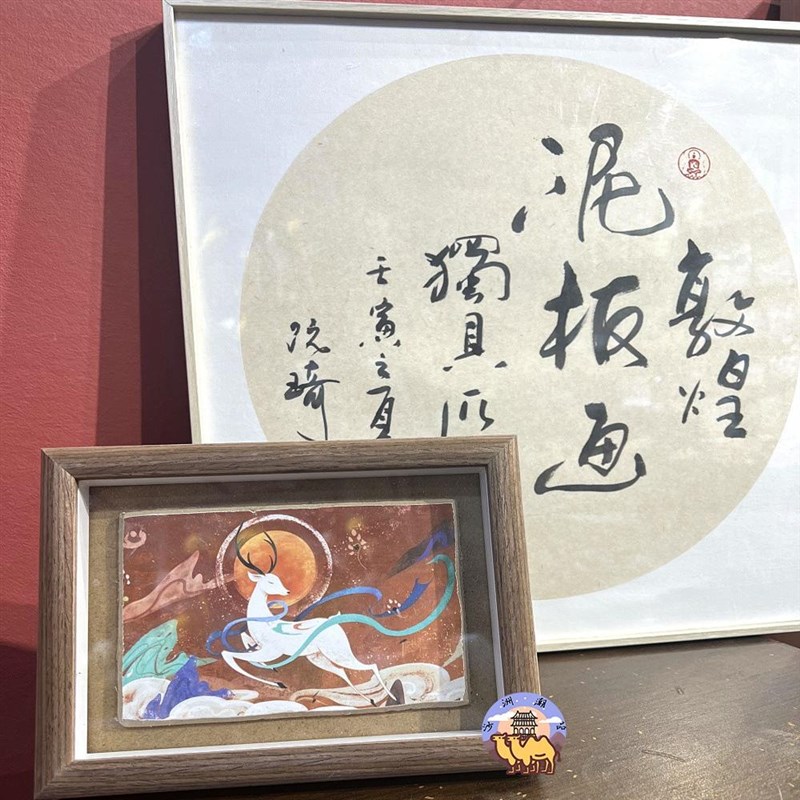 敦煌
泥板画
獨具匠
壬寅之夏
阮琦
沙洲